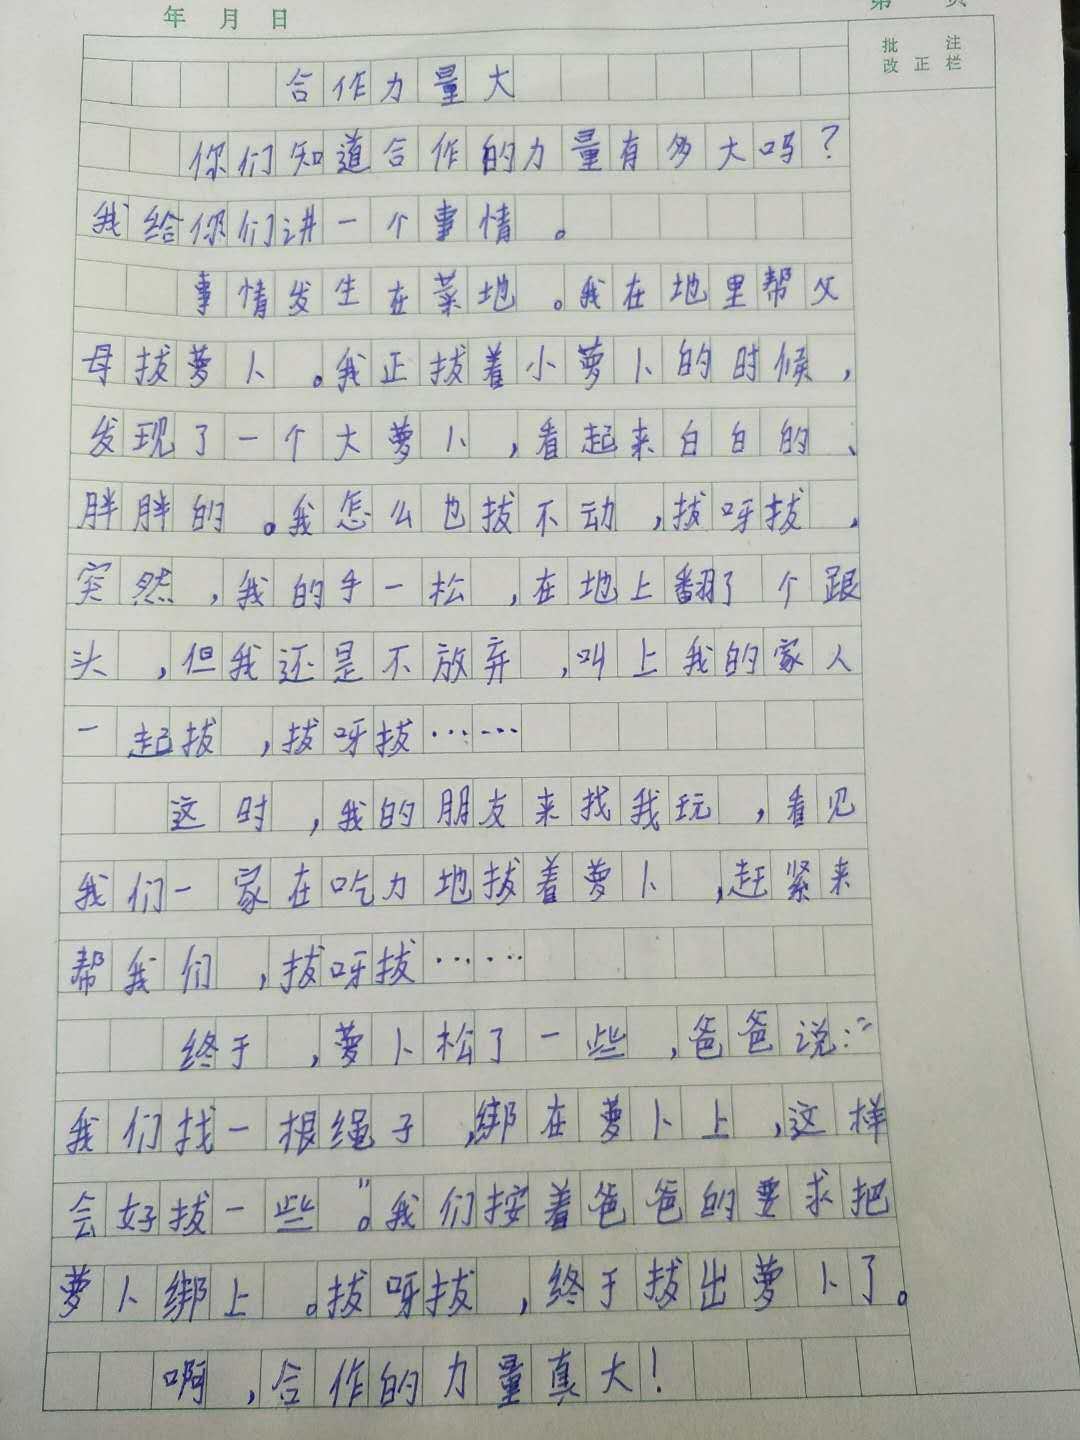 年 月 日
第 页
批注
改正栏
合作力量大
你们知道合作的力量有多大吗？
我给你们讲一个事情。
事情发生在菜地。我在地里帮父
母拔萝卜。我正拔着小萝卜的时候，
发现了一个大萝卜，看起来白白的、
胖胖的。我怎么也拔不动，拔呀拔，
突然，我的手一松，在地上翻了个跟
头，但我还是不放弃，叫上我的家人
一起拔，拔呀拔……
这时，我的朋友来找我玩，看见
我们一家在吃力地拔着萝卜，赶紧来
帮我们，拔呀拔……
终于，萝卜松了一些，爸爸说：“
我们找一根绳子，绑在萝卜上，这样
会好拔一些”。我们按着爸爸的要求把
萝卜绑上。拔呀拔，终于拔出萝卜了。
啊，合作的力量真大！